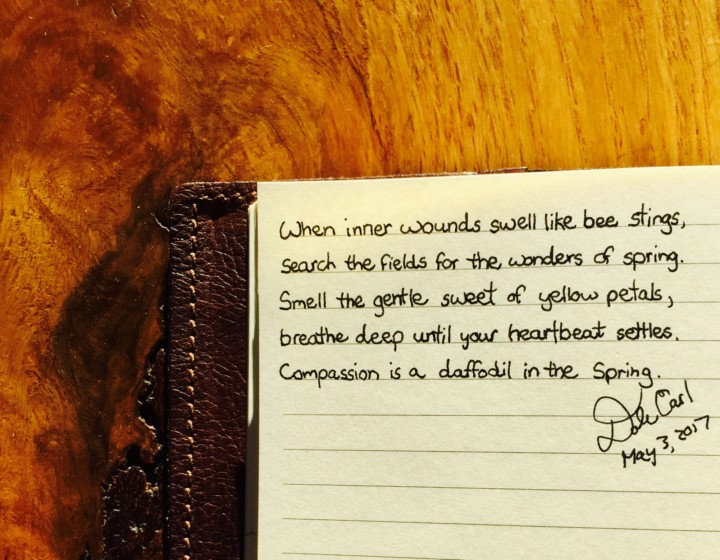 When inner wounds swell like bee stings,
search the fields for the wonders of spring.
Smell the gentle sweet of yellow petals,
breathe deep until your heartbeat settles.
Compassion is a daffodil in the Spring.
Dale Carl
May 3, 2017